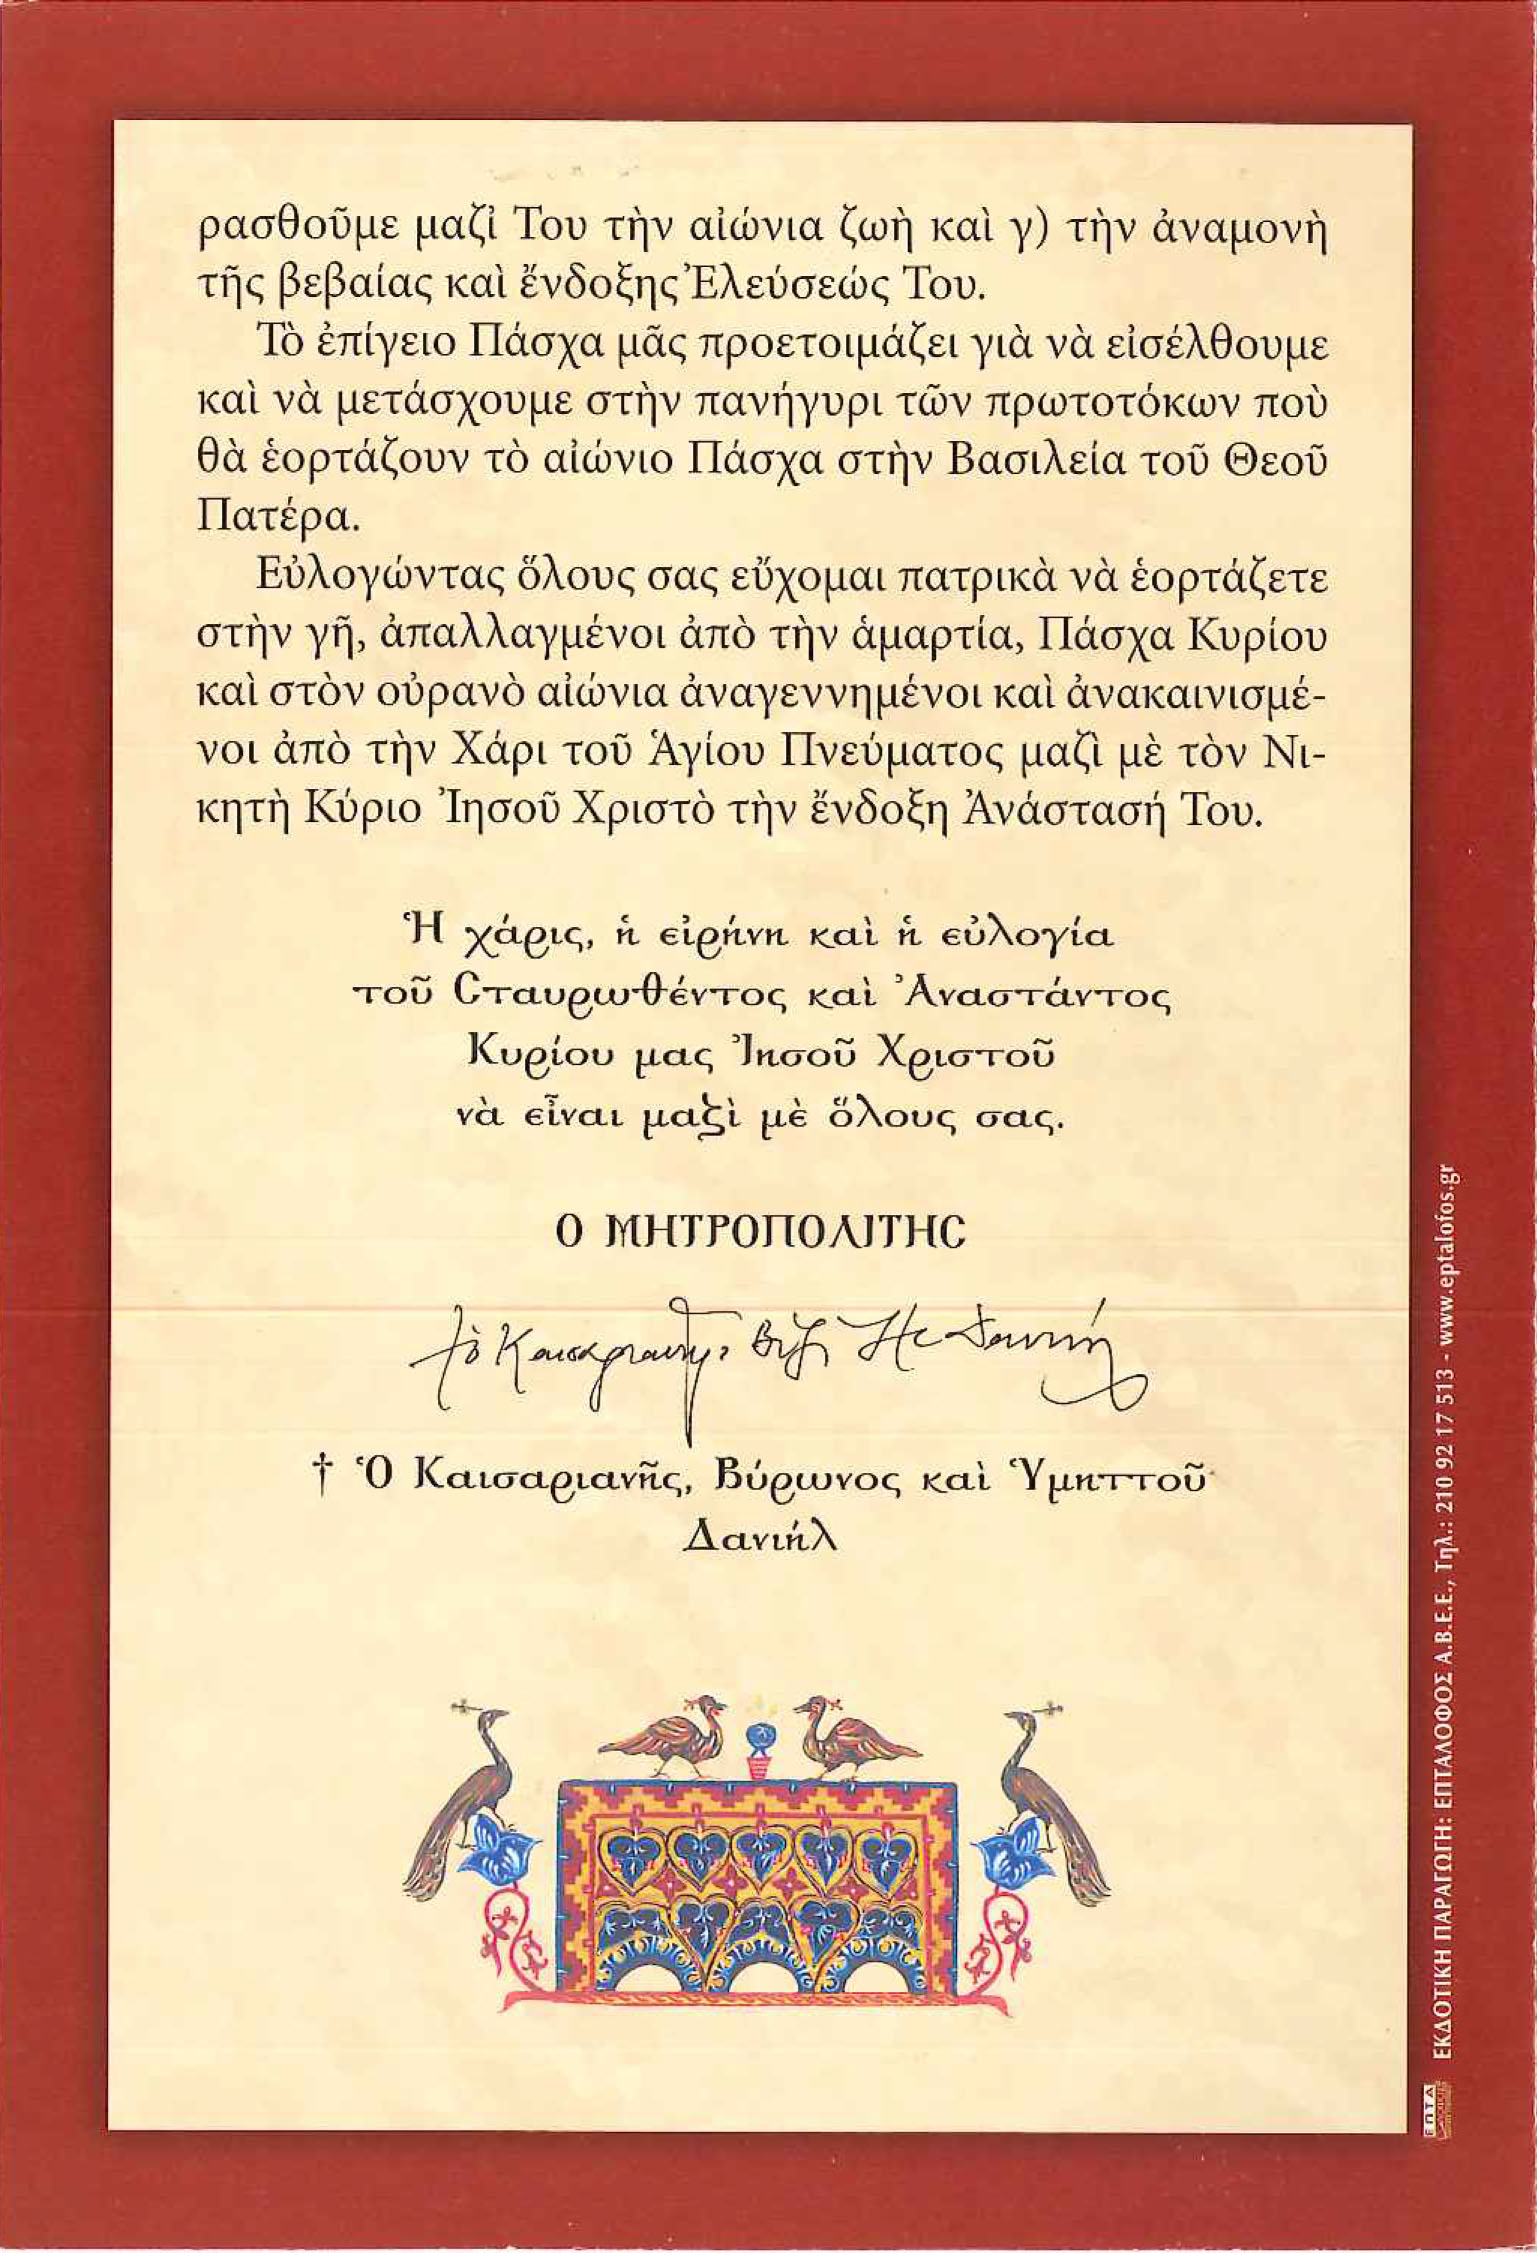 ρασθοῦμε μαζὶ Του τὴν αἰώνια ζωὴ καὶ γ) τὴν ἀναμονὴ
τῆς βεβαίας καὶ ἔνδοξης Ἐλεύσεώς Του.
Τὸ ἐπίγειο Πάσχα μᾶς προετοιμάζει γιὰ νὰ εἰσέλθουμε
καὶ νὰ μετάσχουμε στὴν πανήγυρι τῶν πρωτοτόκων ποὺ
θὰ ἑορτάζουν τὸ αἰώνιο Πάσχα στὴν Βασιλεία τοῦ Θεοῦ
Πατέρα.
Εὐλογώντας ὅλους σας εὔχομαι πατρικὰ νὰ ἑορτάζετε
στὴν γῆ, ἀπαλλαγμένοι ἀπὸ τὴν ἁμαρτία, Πάσχα Κυρίου
καὶ στὸν οὐρανὸ αἰώνια ἀναγεννημένοι καὶ ἀνακαινισμέ-
νοι ἀπὸ τὴν Χάρι τοῦ Ἁγίου Πνεύματος μαζὶ μὲ τὸν Νι-
κητὴ Κύριο Ἰησοῦ Χριστὸ τὴν ἔνδοξη Ἀνάστασή Του.
Ἡ χάρις, ἡ εἰρήνη καὶ ἡ εὐλογία
τοῦ Σταυρωθέντος καὶ Ἀναστάντος
Κυρίου μας Ἰησοῦ Χριστοῦ
νὰ εἶναι μαζὶ μὲ ὅλους σας.
Ο ΜΗΤΡΟΠΟΛΙΤΗΣ
† Ὁ Καισαριανῆς, Βύρωνος καὶ Ὑμηττοῦ
Δανιήλ
ΕΠΤΑ
ΕΚΔΟΤΙΚΗ ΠΑΡΑΓΩΓΗ: ΕΠΤΑΛΟΦΟΣ Α.Β.Ε.Ε., Τηλ.: 210 92 17 513 - www.eptalofos.gr